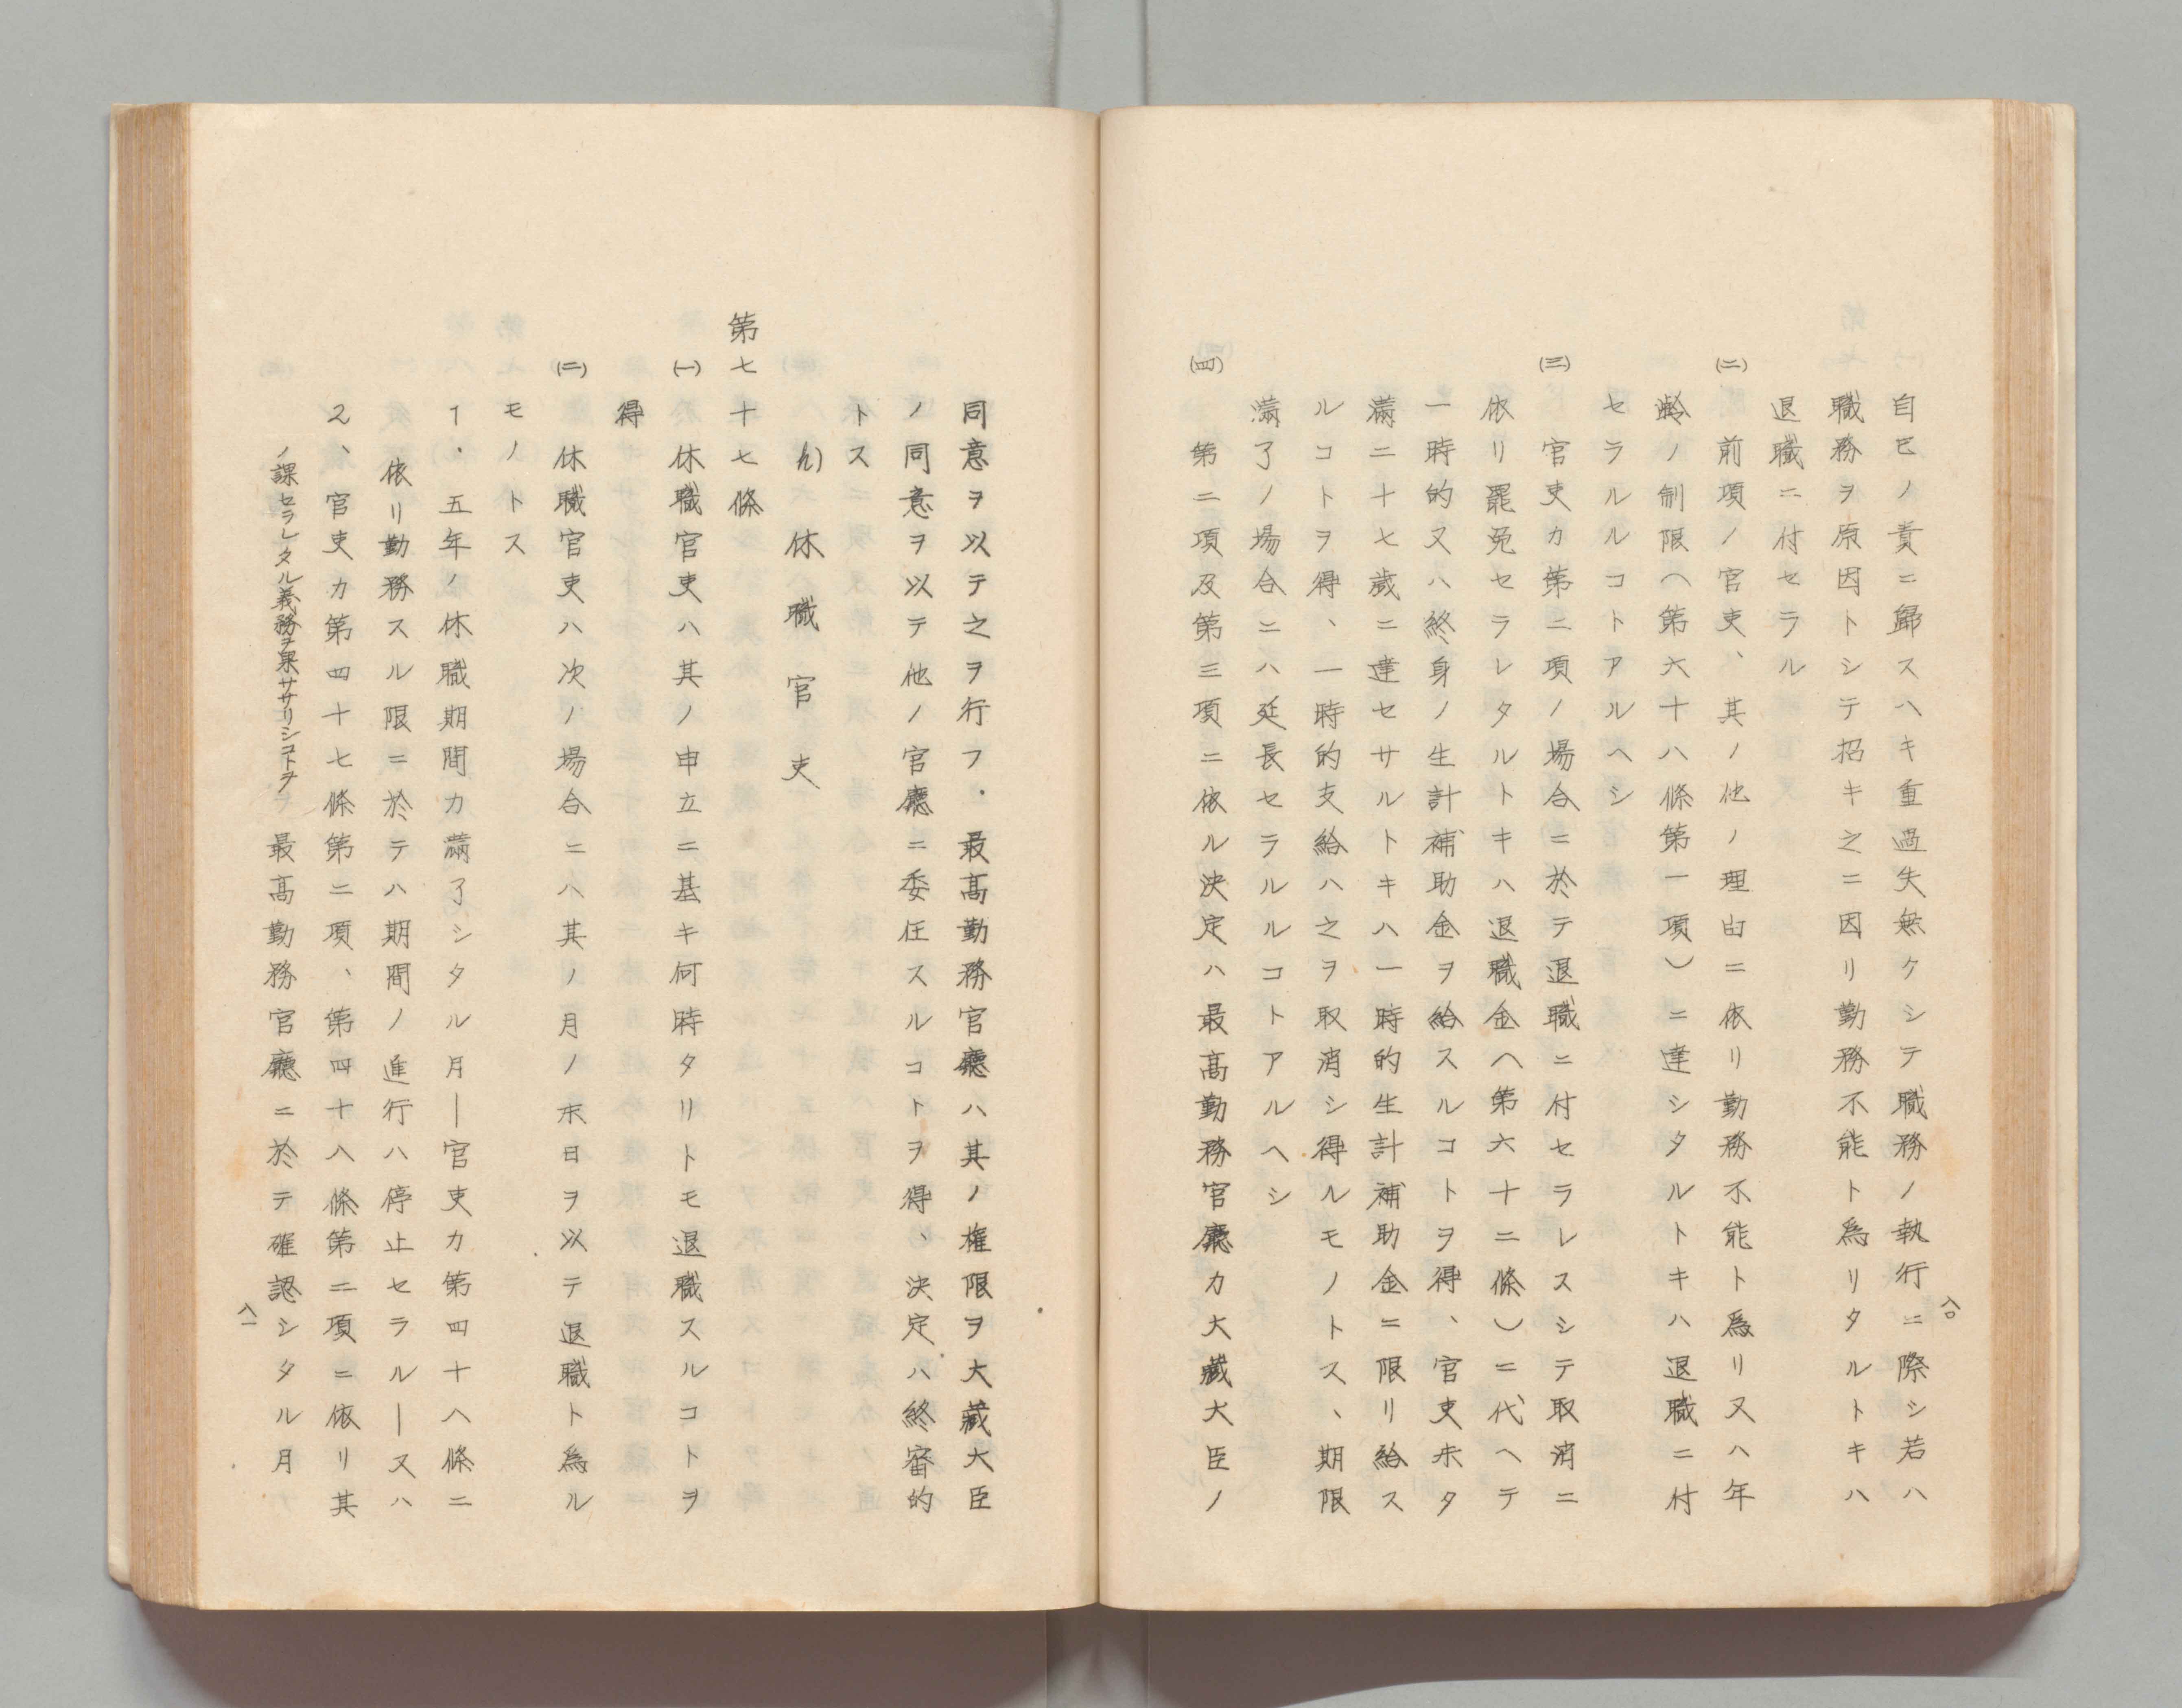 八〇
自己ノ責ニ歸スヘキ重過失無クシテ職務ノ執行ニ際シ若ハ
職務ヲ原因トシテ招キ之ニ因リ勤務不能ト爲リタルトキハ
退職ニ付セラル
(二) 前項ノ官吏、其ノ他ノ理由ニ依リ勤務不能ト爲リ又ハ年
齡ノ制限(第六十八條第一項)ニ達シタルトキハ退職ニ付
セラルルコトアルヘシ
(三) 官吏カ第二項ノ場合ニ於テ退職ニ付セラレスシテ取消ニ
依リ罷免セラレタルトキハ退職金(第六十二條)ニ代ヘテ
一時的又ハ終身ノ生計補助金ヲ給スルコトヲ得、官吏未タ
滿二十七歲ニ達セサルトキハ一時的生計補助金ニ限リ給ス
ルコトヲ得、一時的支給ハ之ヲ取消シ得ルモノトス、期限
滿了ノ場合ニハ延長セラルルコトアルヘシ
(四) 第二項及第三項ニ依ル決定ハ最高勤務官廳カ大藏大臣ノ
同意ヲ以テ之ヲ行フ．最高勤務官廳ハ其ノ權限ヲ大藏大臣
ノ同意ヲ以テ他ノ官廳ニ委任スルコトヲ得、決定ハ終審的
トス
h) 休職官吏
第七十七條
(一) 休職官吏ハ其ノ申立ニ基キ何時タリトモ退職スルコトヲ
得
(二) 休職官吏ハ次ノ場合ニハ其ノ月ノ末日ヲ以テ退職ト爲ル
モノトス
1．五年ノ休職期間カ滿了シタル月—官吏カ第四十八條ニ
依リ勤務スル限ニ於テハ期間ノ進行ハ停止セラル—又ハ
2、官吏カ第四十七條第二項、第四十八條第二項ニ依リ其
ノ課セラレタル義務ヲ果ササリシコトヲ最高勤務官廳ニ於テ確認シタル月
八一